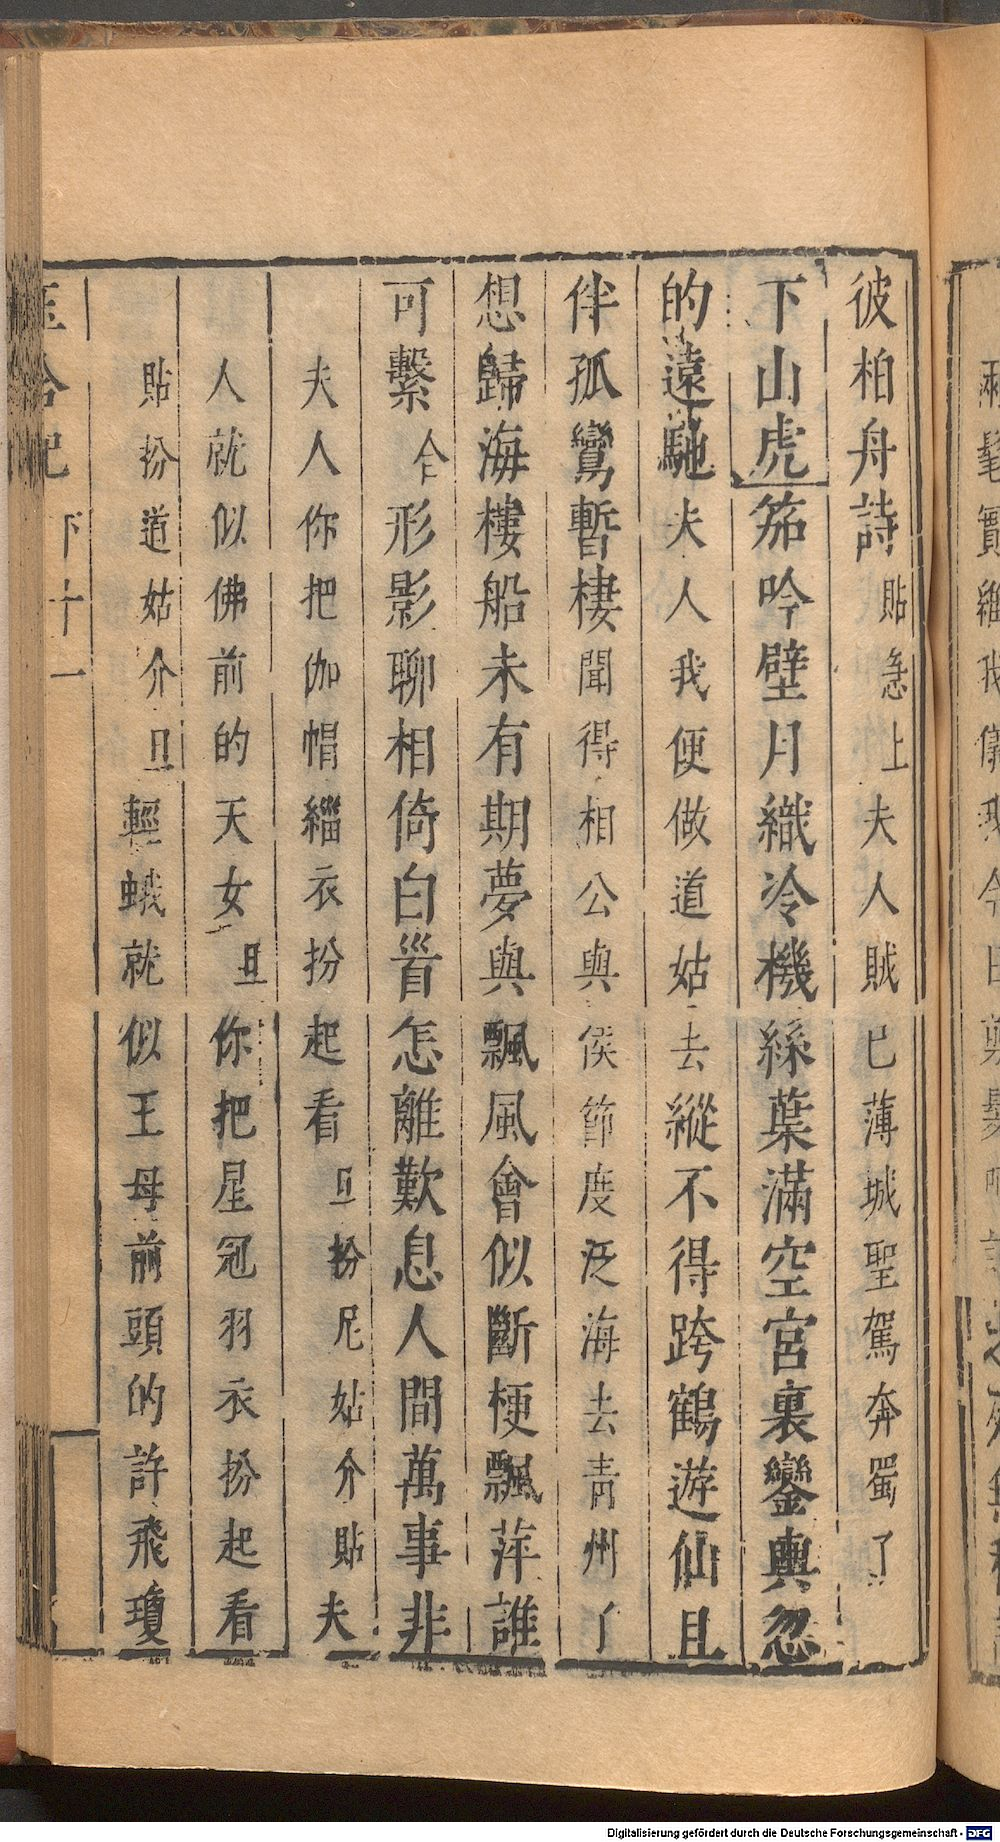 彼柏舟詩貼急上夫人賊已薄城聖駕奔蜀了
下山虎笳吟壁月織冷機絲葉滿空宮裏鑾輿忽
的遠馳夫人我便做道姑去縱不得跨鶴遊仙且
伴孤鸞暫棲聞得相公與侯節度泛海去青州了
想歸海樓船未有期夢與飄風會似斷梗飄萍誰
可繫仝形影聊相倚白首怎離歎息人間萬事非
夫人你把伽帽緇衣扮起看旦扮尼姑介貼夫
人就似佛前的天女旦你把星冠羽衣扮起看
貼扮道姑介旦輕蛾就似王母前頭的許飛瓊
玉合記 下 十一
Digitalisierung gefördert durch die Deutsche Forschungsgemeinschaft - DFG